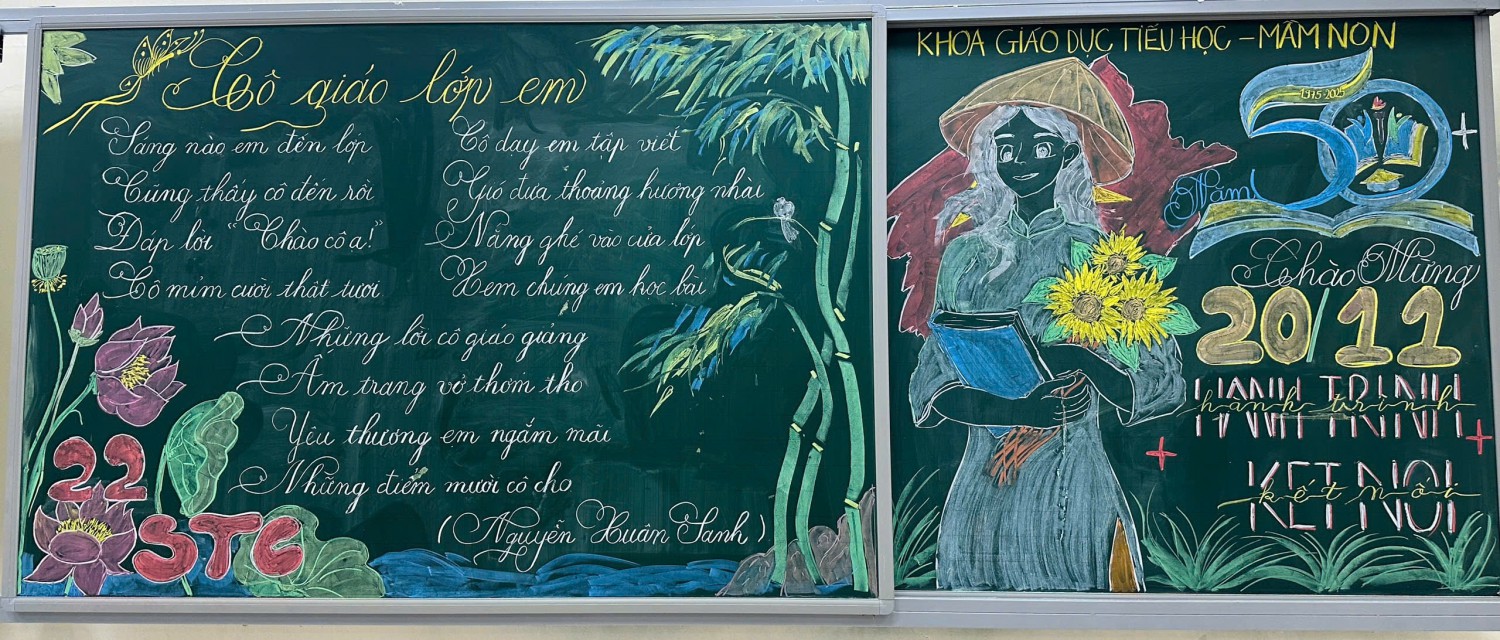 Cô giáo lớp em
Sáng nào em đến lớp
Cũng thấy cô đến rồi
Đáp lời "Chào cô ạ!"
Cô mỉm cười thật tươi
Cô dạy em tập viết
Gió đưa thoảng hương nhài
Nắng ghé vào cửa lớp
Xem chúng em học bài
Những lời cô giáo giảng
Ấm trang vở thơm tho
Yêu thương em ngắm mãi
Những điểm mười cô cho
(Nguyễn Xuân Sanh)
22
STC
KHOA GIÁO DỤC TIỂU HỌC - MẦM NON
1975-2025
50
Năm
Chào Mừng
20/11
HÀNH TRÌNH
hành trình
KẾT NỐI
kết nối